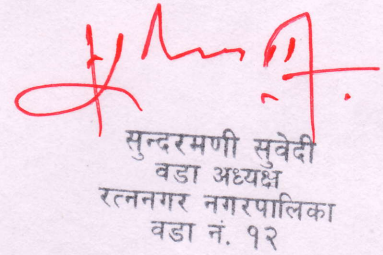 सुन्दरमणी सुवेदी
वडा अध्यक्ष
रत्ननगर नगरपालिका
वडा नं. १२